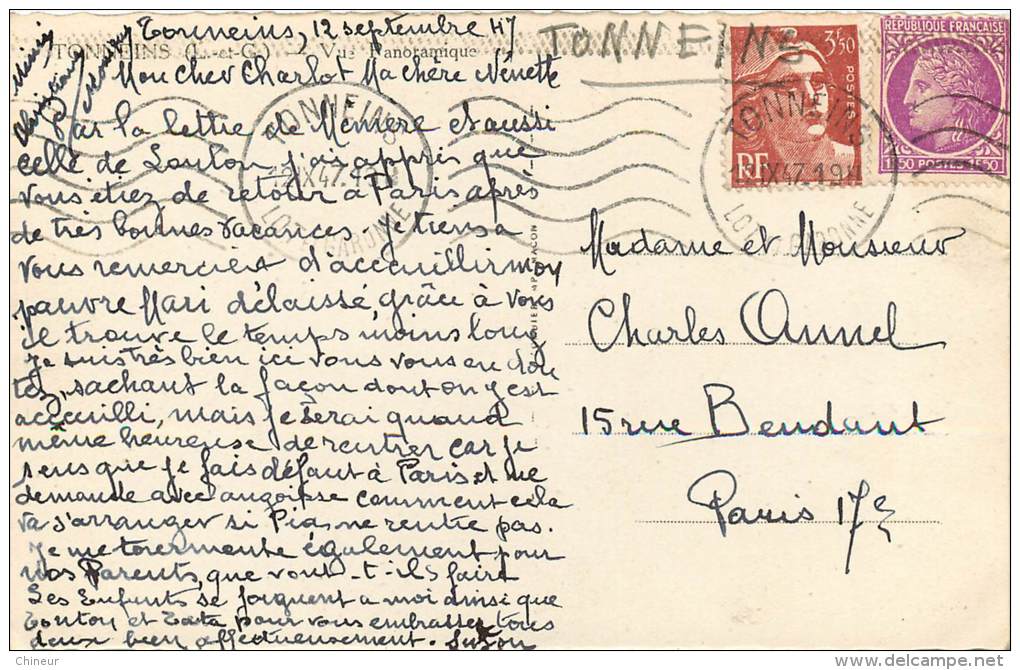 Tonneins, 12 septembre 47
TONNEINS (L.-et-G.) - Vue Panoramique
Mon cher Charlot Ma chère Nénette
Par la lettre de Mémère et aussi
celle de Loulou j'ais appris que
vous étiez de retour à Paris après
de très bonnes vacances. Je tiens a
vous remerciet d'accueillir moy
pauvre Mari délaissé, grâce à vous
il trouve le temps moins long
Je suis très bien ici vous vous en dou
tez, sachant la façon dont on y est
acceuilli, mais je serai quand
même heureuse de rentrer car je
sens que je fais défaut à Paris et me
demande avec angoisse comment cela
va s'arranger si Pia ne rentre pas.
Je me torermente également pour
nos Parents, que vont-t-ils faire
Les Enfants se joignent a moi ainsi que
Tonton et Tata pour vous embrasser tous
deux bien affectueusement. Suzon
TONNEINS
TONNEINS
LOT-ET-GARONNE
3F50
POSTES
RF
RÉPUBLIQUE FRANÇAISE
1F50 POSTES 1F50
TONNEINS
IX47.19H
LOT-ET-GARONNE
Madame et Monsieur
Charles Annel
15 rue Bendant
Paris 17e
Chineur
www.delcampe.net